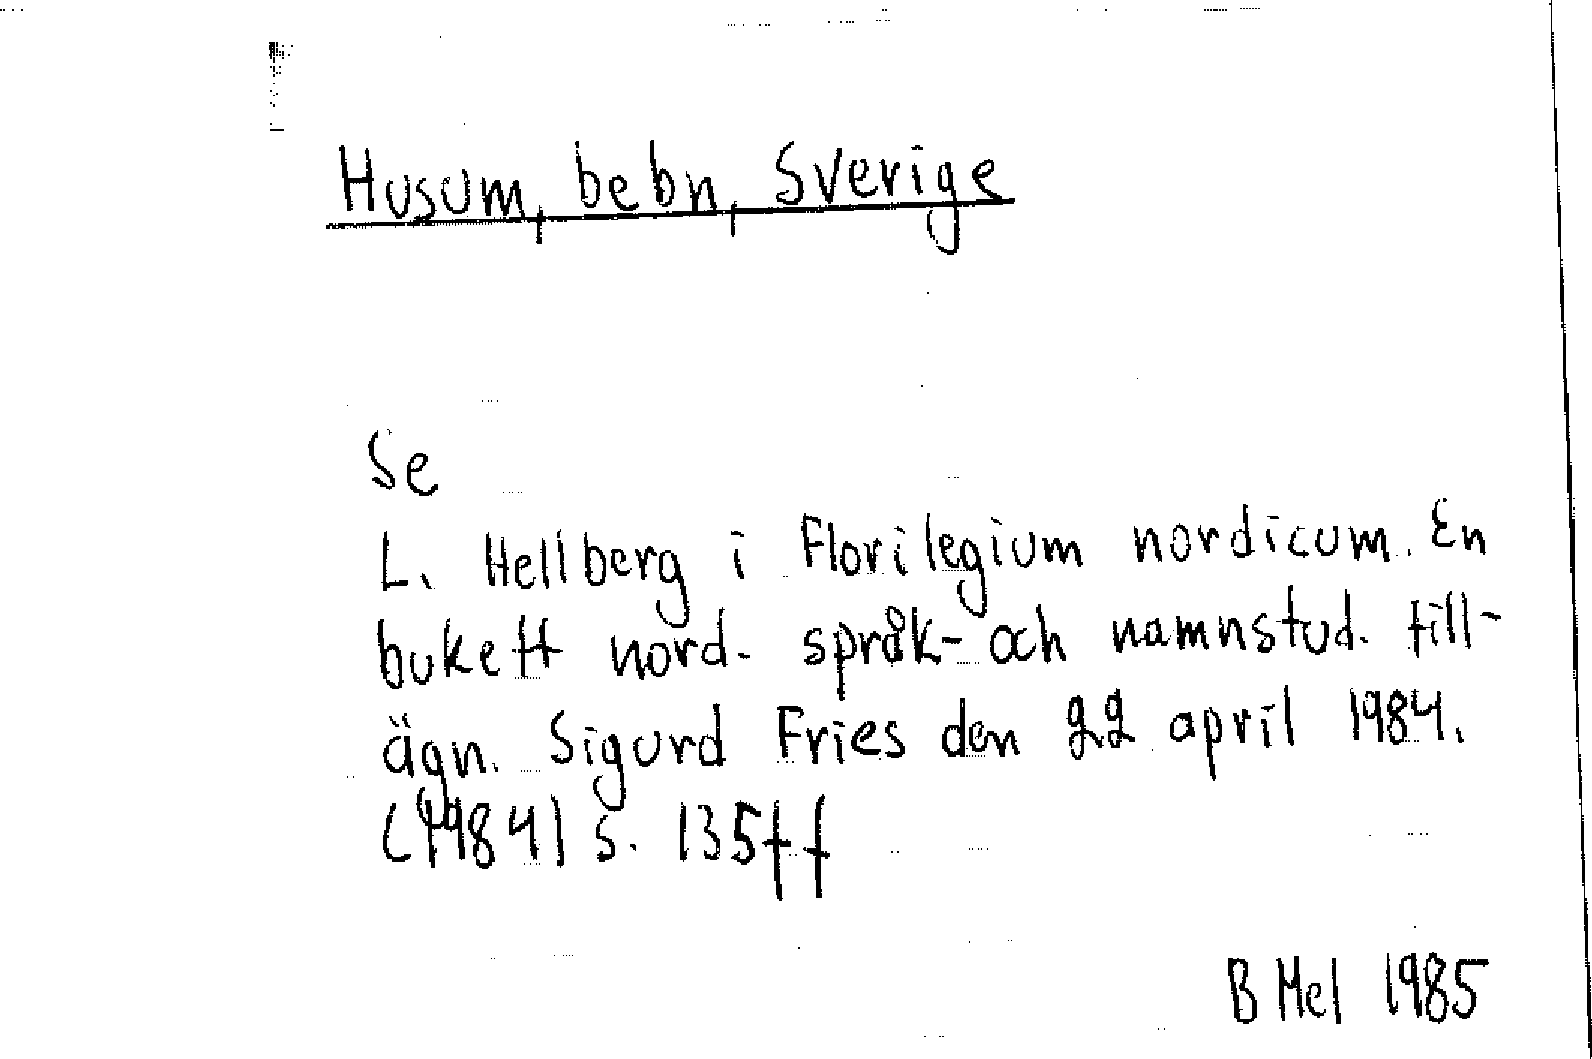 Husum, bebn, Sverige
Se
L. Hellberg i Florilegium nordicum. En
bukett nord. språk- och namnstud. till-
ägn. Sigurd Fries den 22 april 1984.
(1984) s. 135ff
B Mel 1985